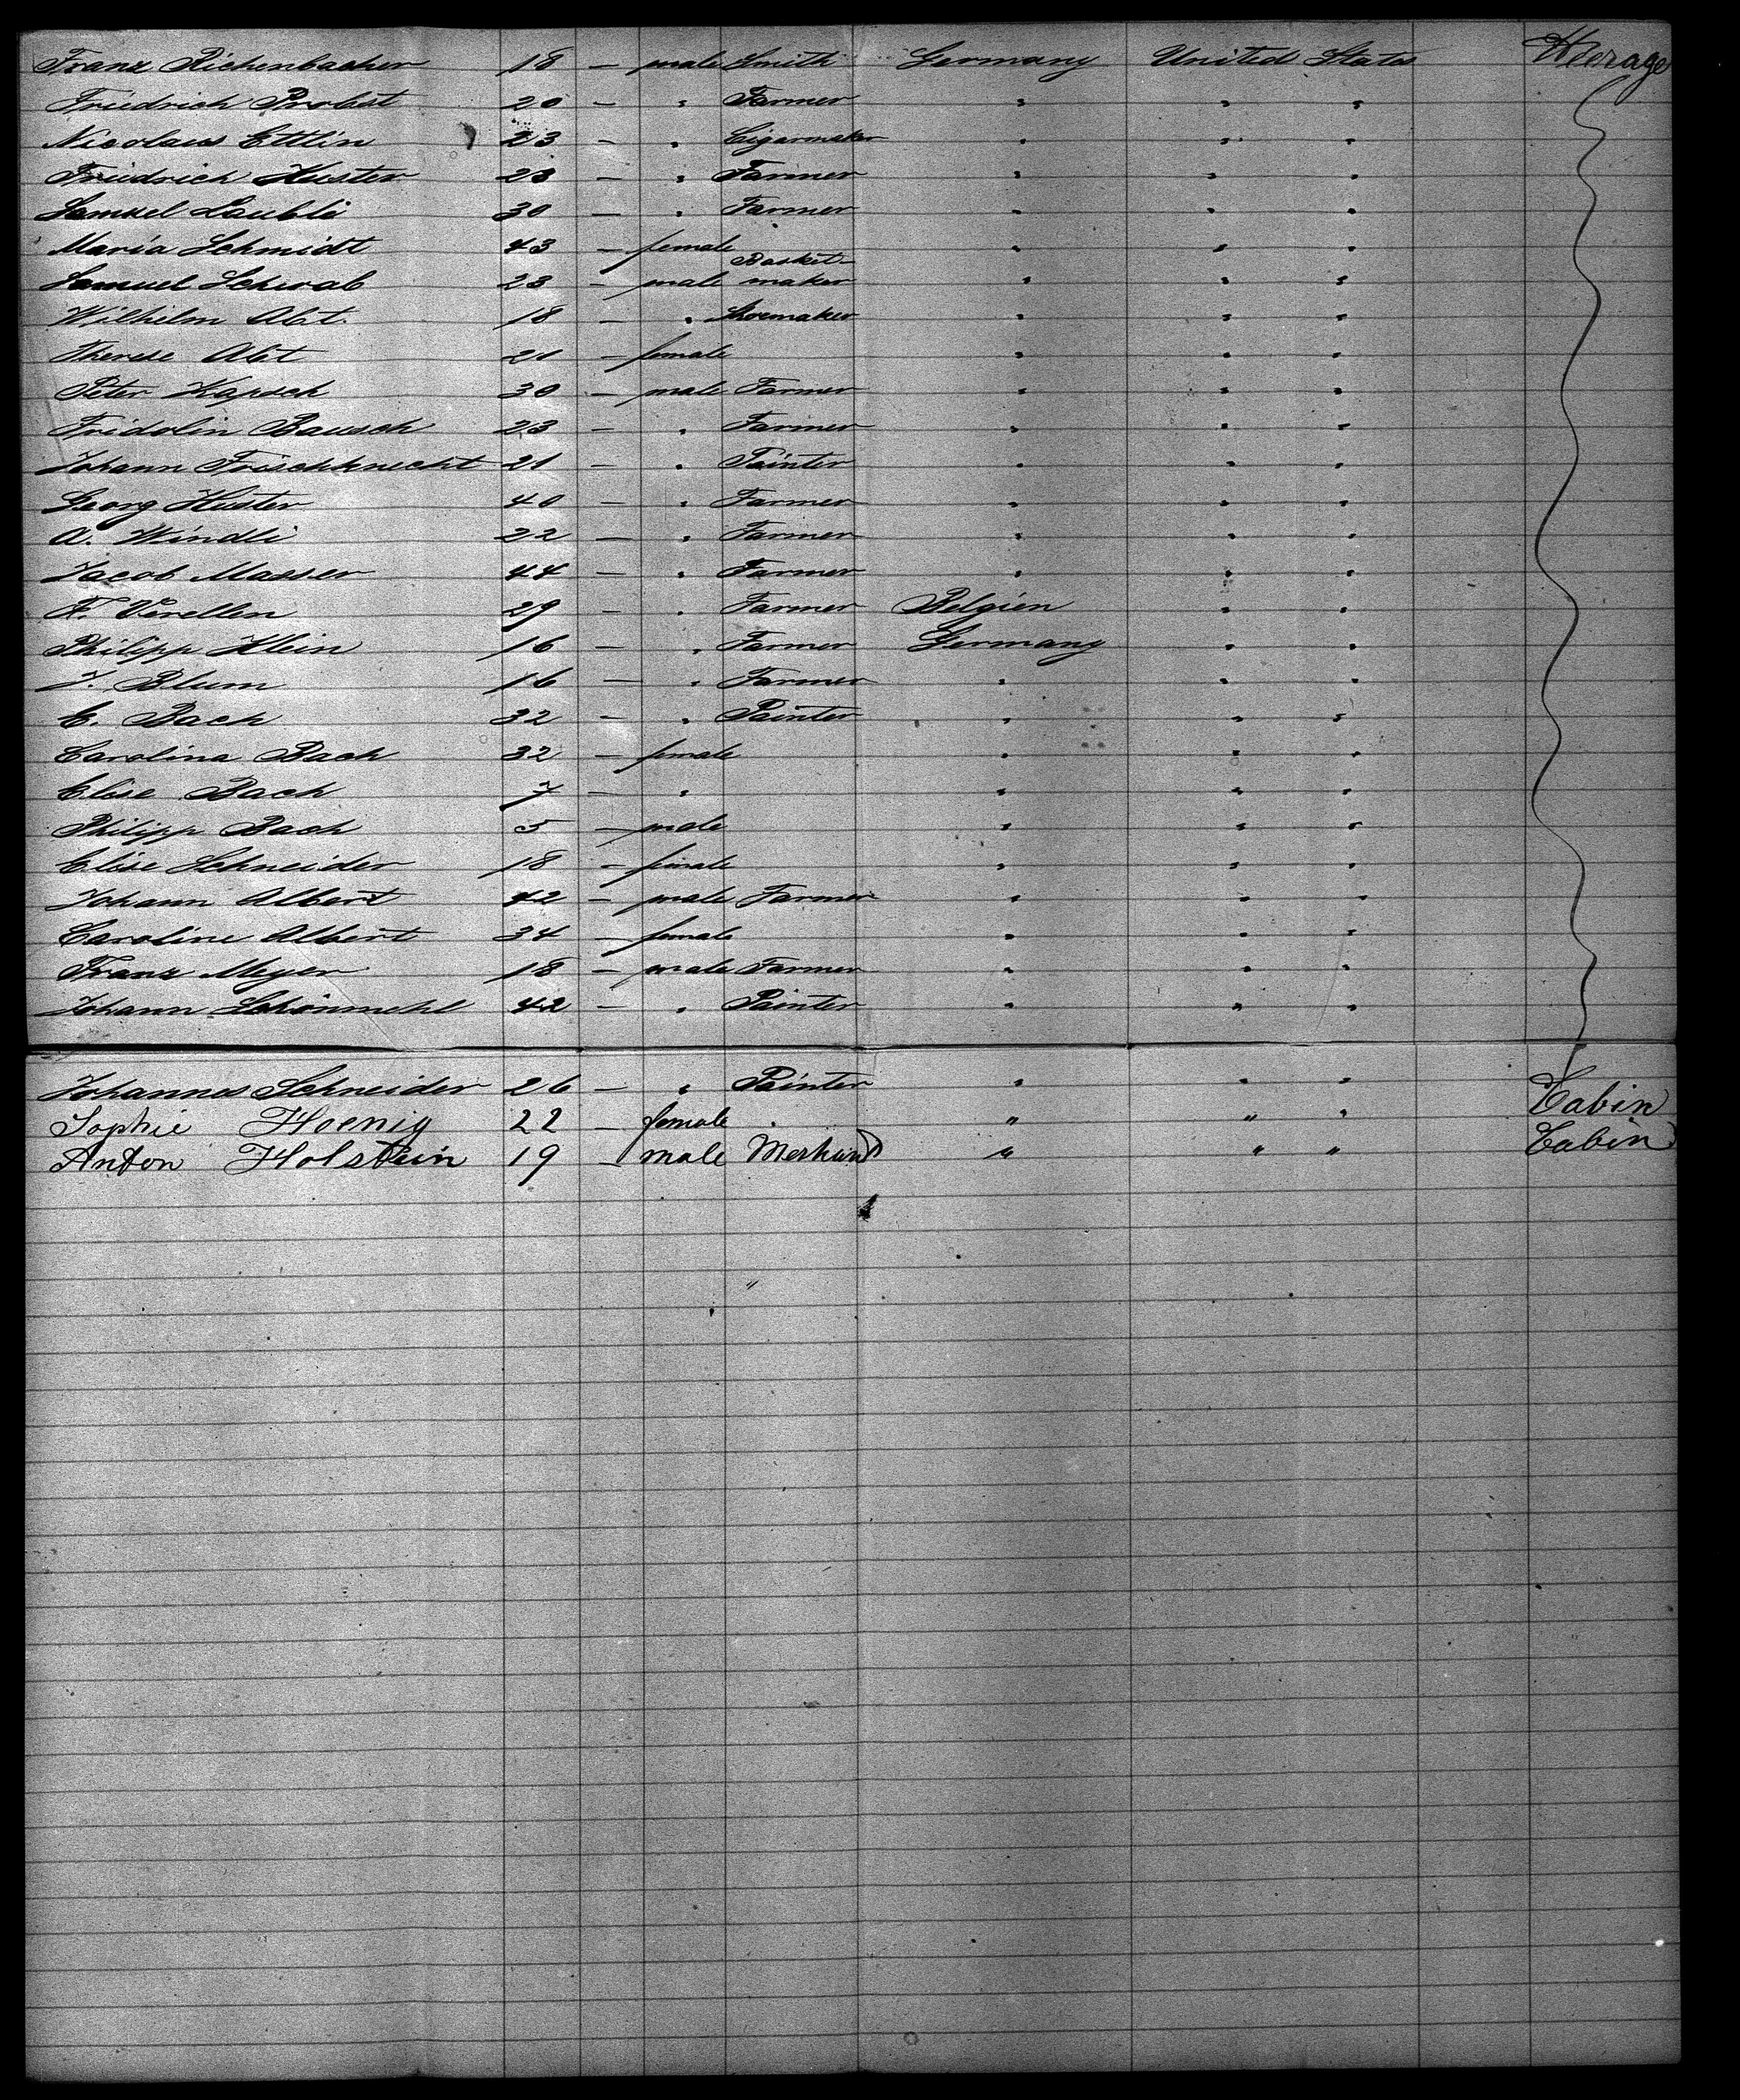 Franz Richenbacher 18 — male Smith Germany United States Steerage
Friedrich Probst 20 — " Farmer " " "
Nicolaus Ettlin 23 — " Cigarmaker " " "
Friedrich Huster 23 — " Farmer " " "
Samuel Laubli 30 — " Farmer " " "
Maria Schmidt 43 — female " " "
Samuel Schwab 23 — male Basket-maker " " "
Wilhelm Abt. 18 — " Shoemaker " " "
Therese Abt 21 — female " " "
Peter Kapsch 30 — male Farmer " " "
Fridolin Bausch 23 — " Farmer " " "
Johann Frischknecht 21 — " Painter " " "
Georg Huster 40 — " Farmer " " "
A. Windli 22 — " Farmer " " "
Jacob Masser 44 — " Farmer " " "
F. Verellen 29 — " Farmer Belgien " "
Philipp Klein 16 — " Farmer Germany " "
J. Blum 16 — " Farmer " " "
C. Bach 32 — " Painter " " "
Carolina Bach 32 — female " " "
Elise Bach 7 — " " " "
Philipp Bach 5 — male " " "
Elise Schneider 18 — female " " "
Johann Albert 42 — male Farmer " " "
Caroline Albert 34 — female " " "
Franz Meyer 18 — male Farmer " " "
Johann Schönmehl 42 — " Painter " " "
Johannes Schneider 26 — " Painter " " "
Sophie Hoenig 22 — female " " " Cabin
Anton Holstein 19 — male " " " Cabin